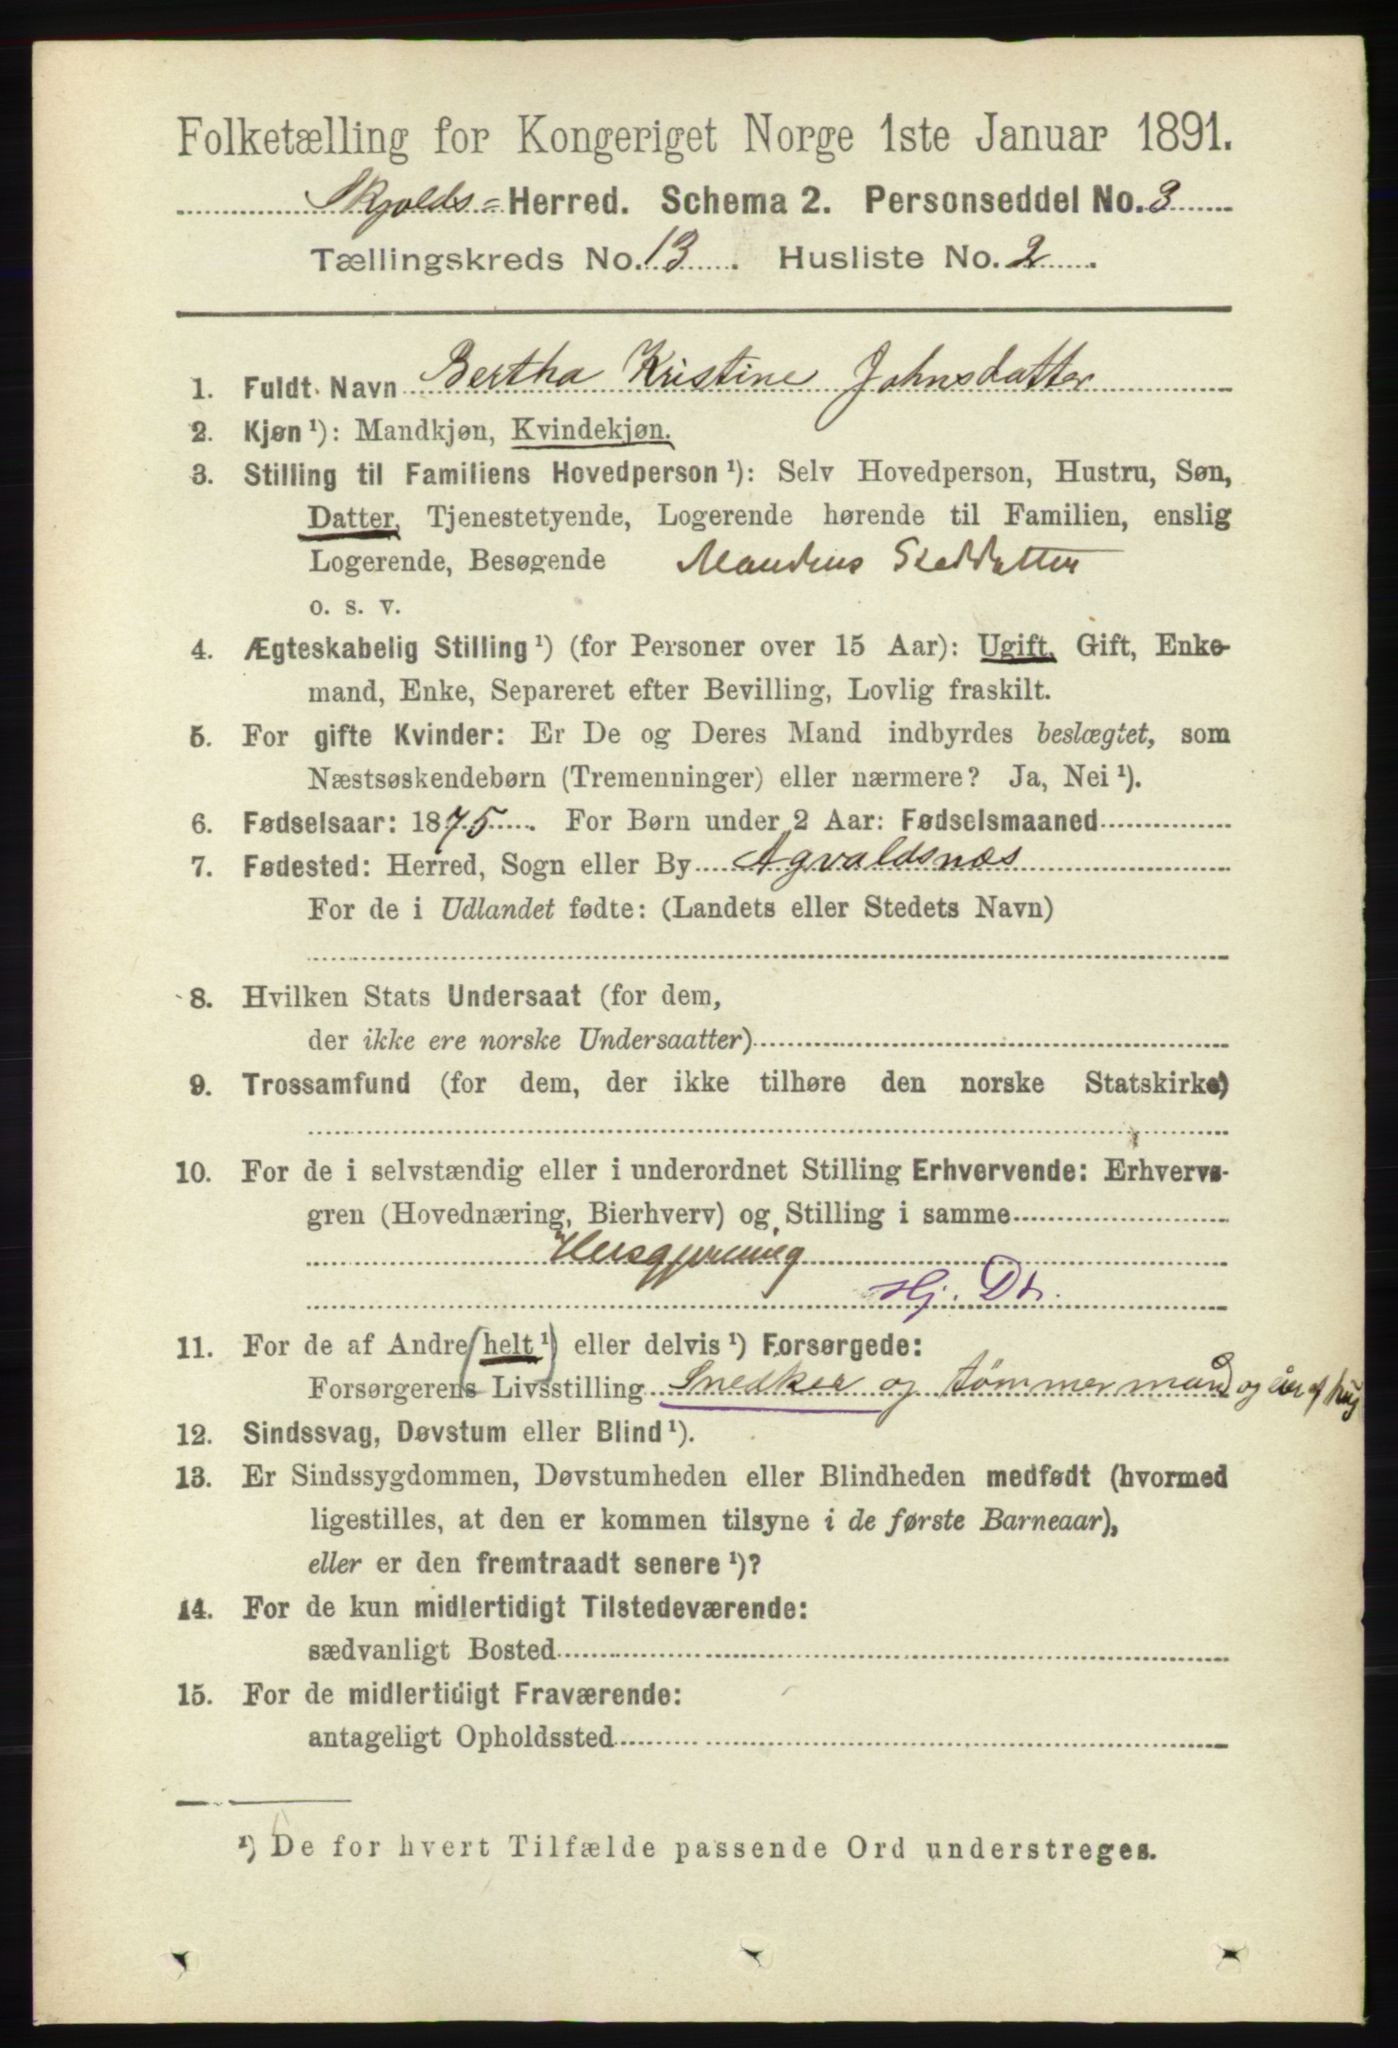 Folketælling for Kongeriget Norge 1ste Januar 1891.
Skjolds = Herred. Schema 2. Personseddel No. 3
Tællingskreds No. 13. Husliste No. 2.
1. Fuldt Navn Bertha Kristine Johnsdatter
2. Kjøn ¹): Mandkjøn, Kvindekjøn.
3. Stilling til Familiens Hovedperson ¹): Selv Hovedperson, Hustru, Søn,
Datter, Tjenestetyende, Logerende hørende til Familien, enslig
Logerende, Besøgende Mandens Steddatter
o. s. v.
4. Ægteskabelig Stilling ¹) (for Personer over 15 Aar): Ugift, Gift, Enke-
mand, Enke, Separeret efter Bevilling, Lovlig fraskilt.
5. For gifte Kvinder: Er De og Deres Mand indbyrdes beslægtet, som
Næstsøskendebørn (Tremenninger) eller nærmere? Ja, Nei ¹).
6. Fødselsaar: 1875. For Børn under 2 Aar: Fødselsmaaned
7. Fødested: Herred, Sogn eller By Agvaldsnæs
For de i Udlandet fødte: (Landets eller Stedets Navn)
8. Hvilken Stats Undersaat (for dem,
der ikke ere norske Undersaatter)
9. Trossamfund (for dem, der ikke tilhøre den norske Statskirke)
10. For de i selvstændig eller i underordnet Stilling Erhvervende: Erhvervs-
gren (Hovednæring, Bierhverv) og Stilling i samme
Husgjerning
Hj. Dt.
11. For de af Andre (helt ¹) eller delvis ¹) Forsørgede:
Forsørgerens Livsstilling Snedker og tømmermand og
12. Sindssvag, Døvstum eller Blind ¹).
13. Er Sindssygdommen, Døvstumheden eller Blindheden medfødt (hvormed
ligestilles, at den er kommen tilsyne i de første Barneaar),
eller er den fremtraadt senere ¹)?
14. For de kun midlertidigt Tilstedeværende:
sædvanligt Bosted
15. For de midlertidigt Fraværende:
antageligt Opholdssted
¹) De for hvert Tilfælde passende Ord understreges.